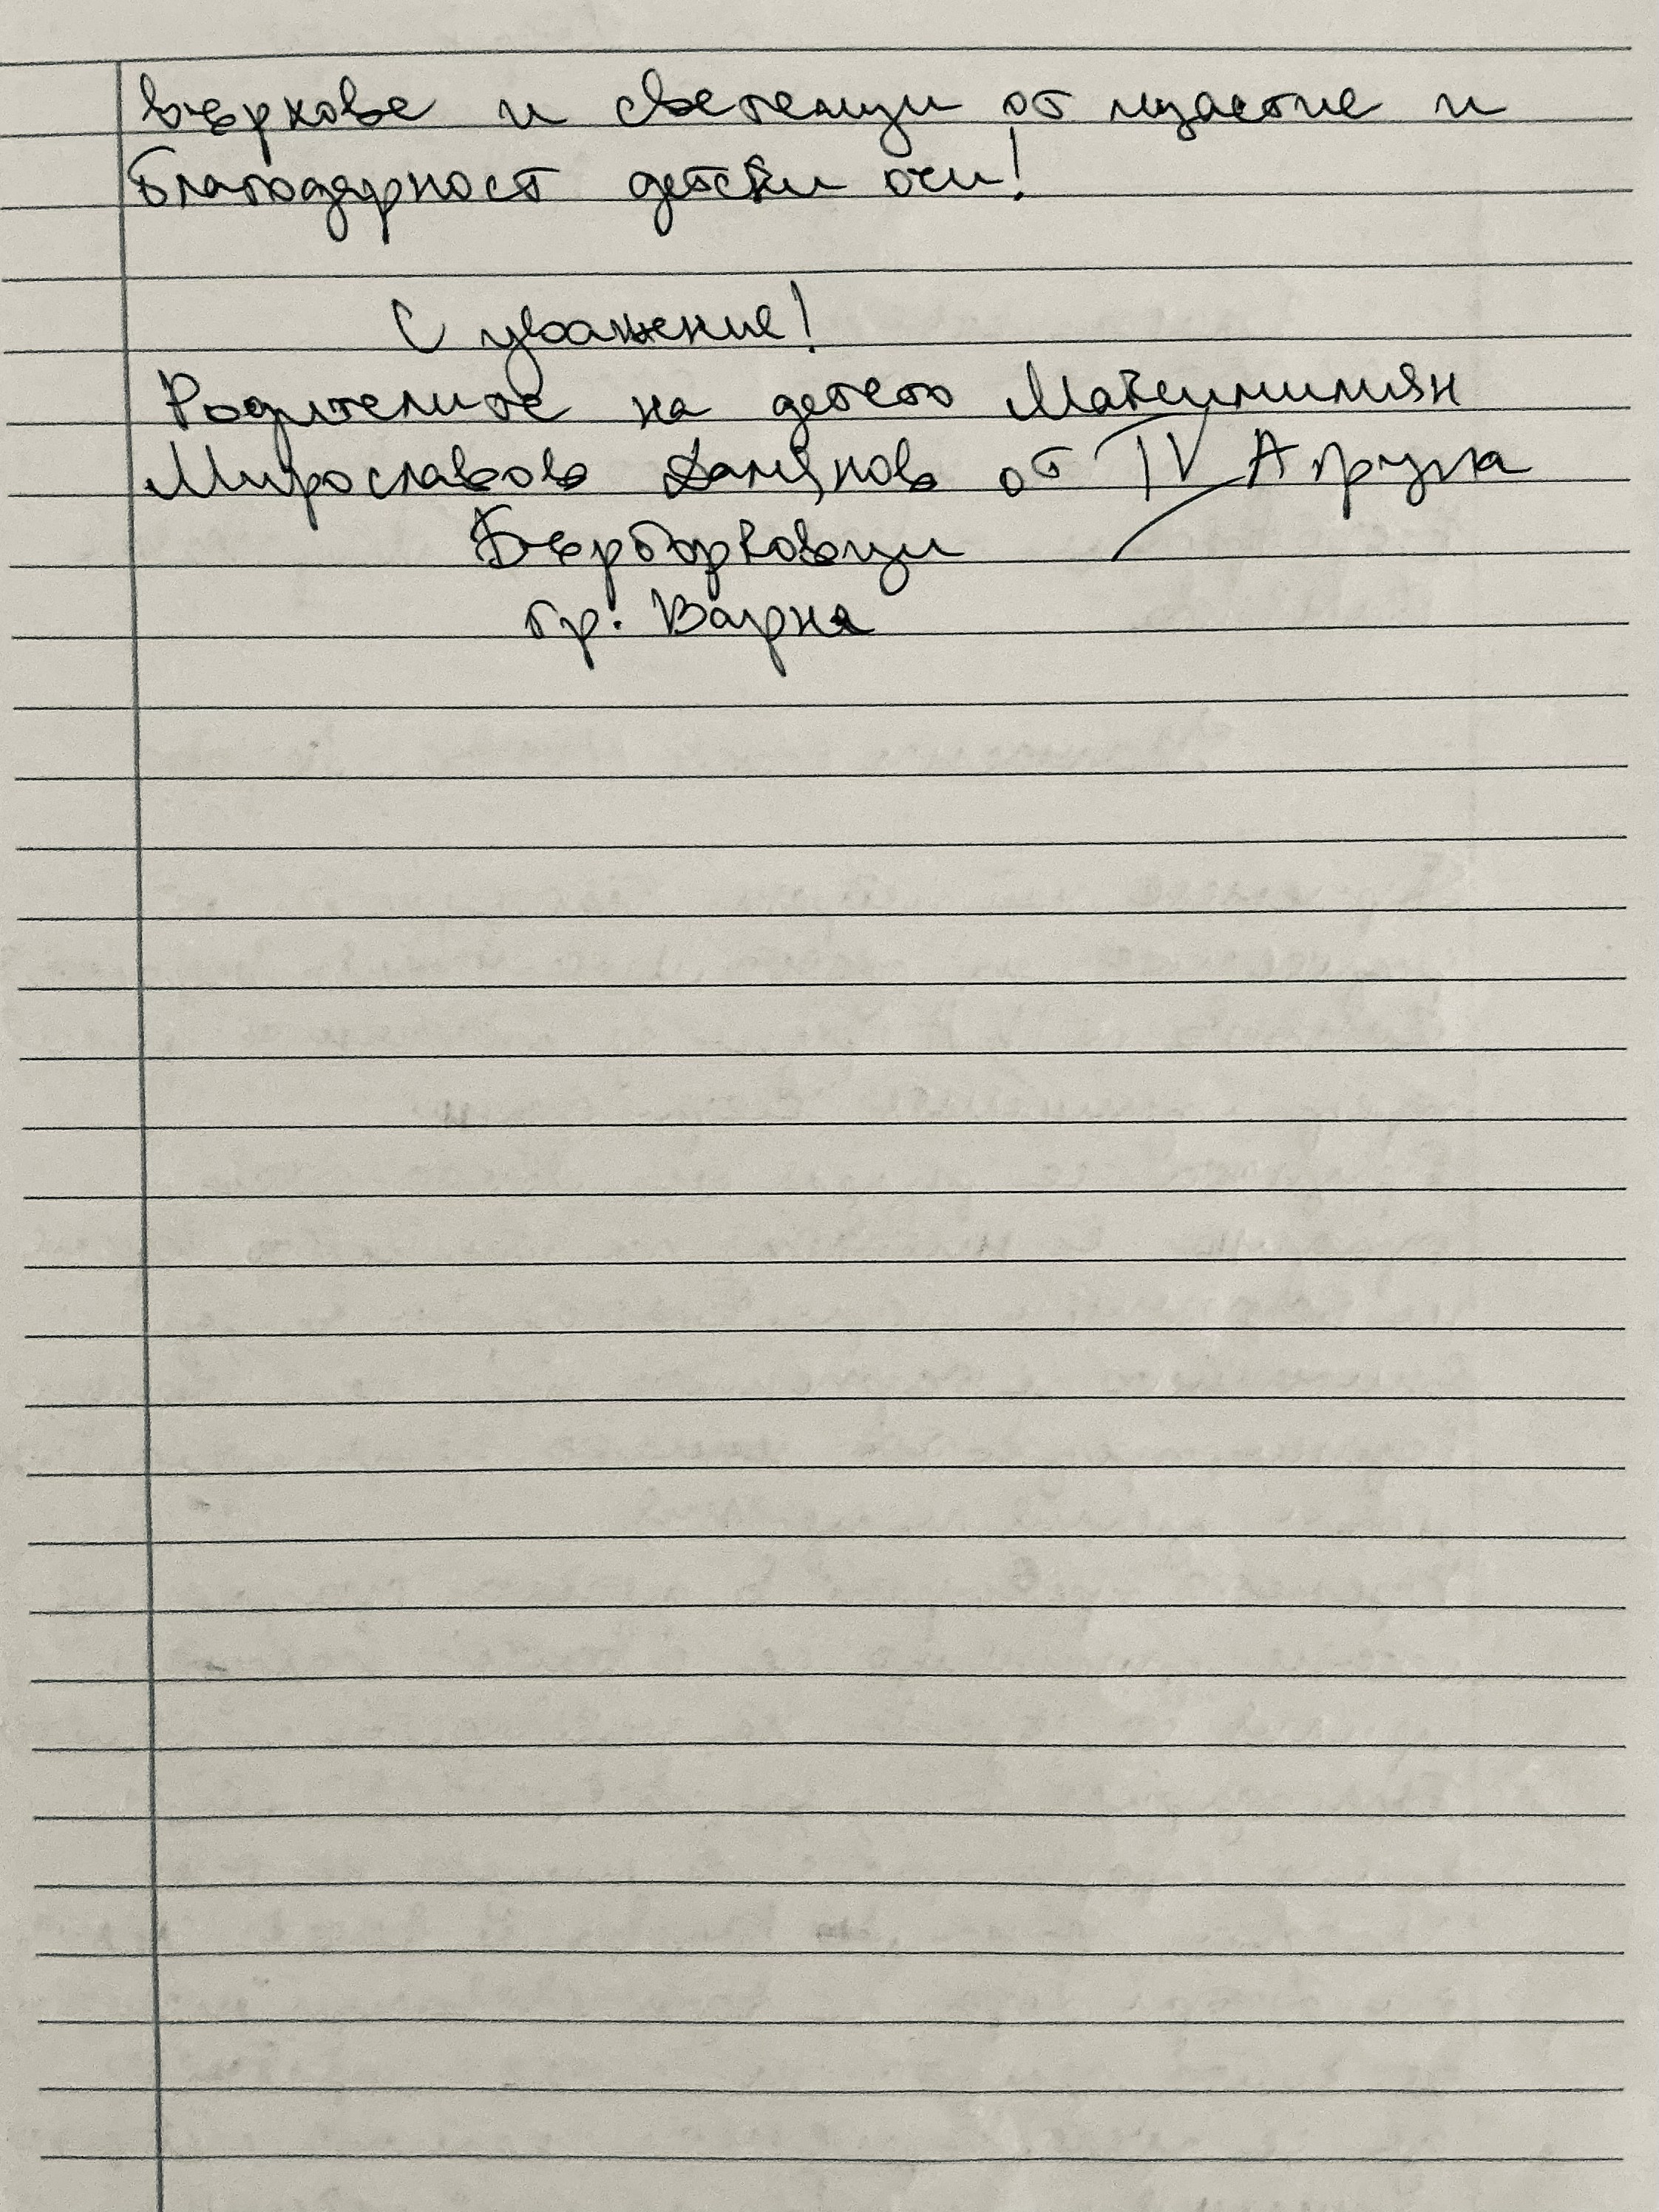 върхове и светещи от щастие и
благодарност детски очи!
С уважение!
Родителите на детето Максимилиян
Мирославов Дамянов от IV А група
Бърборковци
гр. Варна